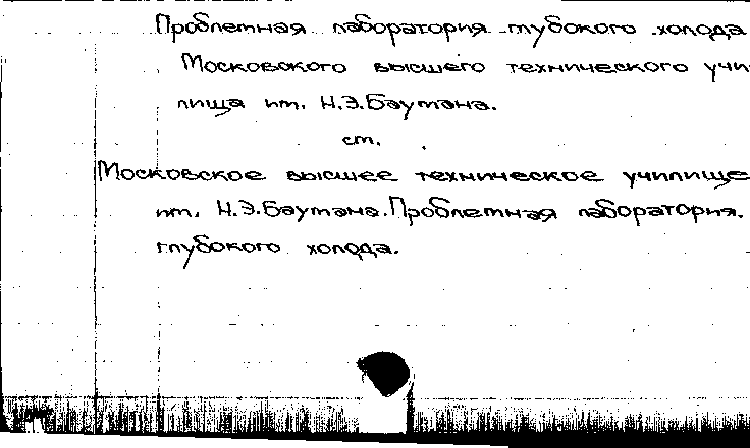 Проблемная лаборатория глубокого холода
Московского высшего технического учи-
лища им. Н.Э.Баумана.
см.
Московское высшее техническое училище
им. Н.Э.Баумана. Проблемная лаборатория
глубокого холода.